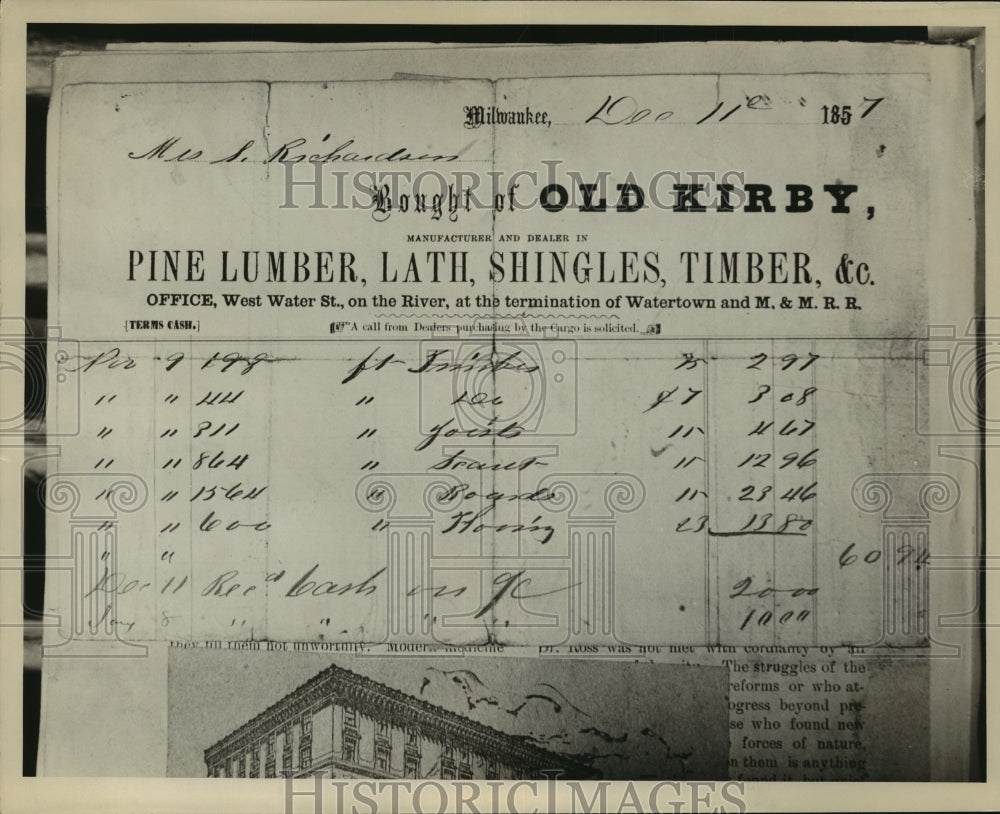 Milwaukee, Dec 11e 1857
Mrs S. Richardson
Bought of OLD KIRBY,
MANUFACTURER AND DEALER IN
PINE LUMBER, LATH, SHINGLES, TIMBER, &c.
OFFICE, West Water St., on the River, at the termination of Watertown and M. & M. R. R.
[TERMS CASH.] A call from Dealers purchasing by the Cargo is solicited.
Nov 9 198 ft Timber 15 2 97
" " 44 " Do 3 08
" " 311 " Joists 15 4 67
" " 864 " Scant 15 12 96
" " 1564 " Boards 15 23 46
" " 600 " Flooring 23 13 80
" " 60 94
Dec 11 Rec'd Cash on a/c 20 00
Jany 8 " " " " 10 00
they fill them not unworthily. Modern medicine
Dr. Ross was not met with cordiality by all
The struggles of the
reforms or who at-
ogress beyond pre-
se who found new
forces of nature,
n them is anything
HISTORICIMAGES
HISTORICIMAGES